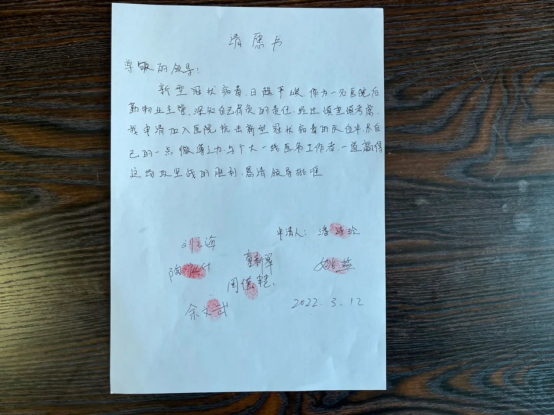 请愿书
尊敬的领导:
新型冠状病毒,日趋严峻,作为一名医院后
勤物业主管,深知自己肩负的责任,经过慎重慎考虑,
我申请加入医院抗击新型冠状病毒的队伍中尽自
己的一点微薄之力,与广大一线医务工作者一道赢得
这场攻坚战的胜利,恳请领导批准
申请人:潘
海
陶
周
余文武
2022.3.12